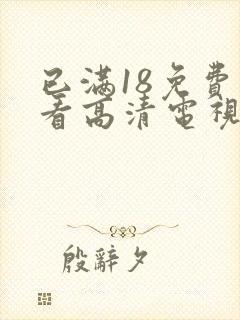 已满18免費
看高清電視
殷辭夕